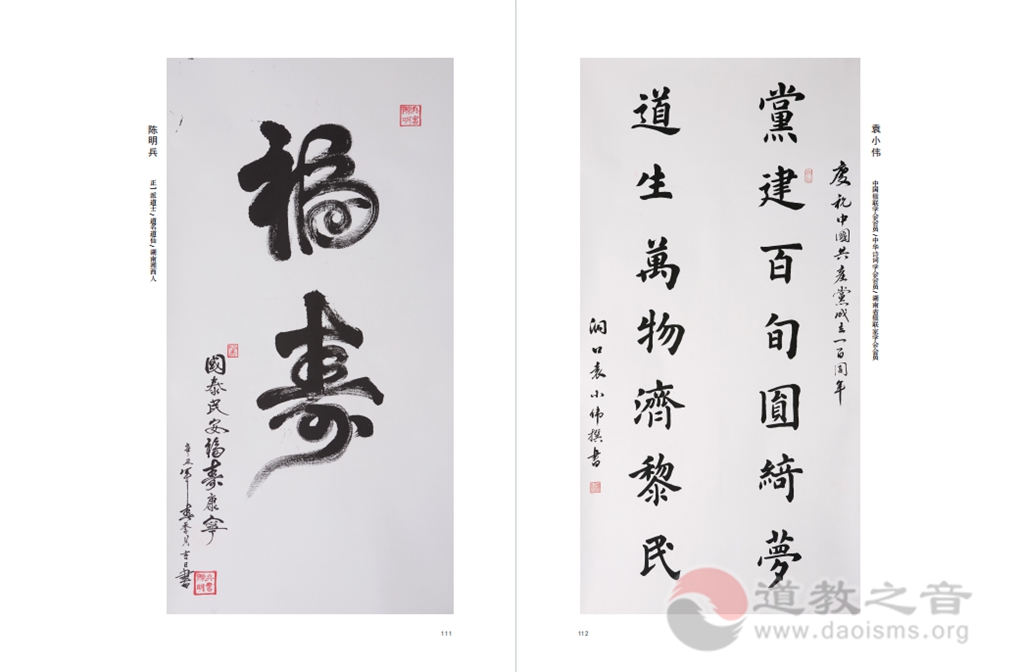 陈明兵
正一派道士/道名道仙/湖南湘西人
福
壽
國泰民安福壽康寧
111
袁小伟
中国楹联学会会员/中华诗词学会会员/湖南省楹联家学会会员
慶祝中國共産黨成立一百周年
黨建百旬圓綺夢
道生萬物濟黎民
洞口袁小偉撰書
112
道教之音
www.daoisms.org